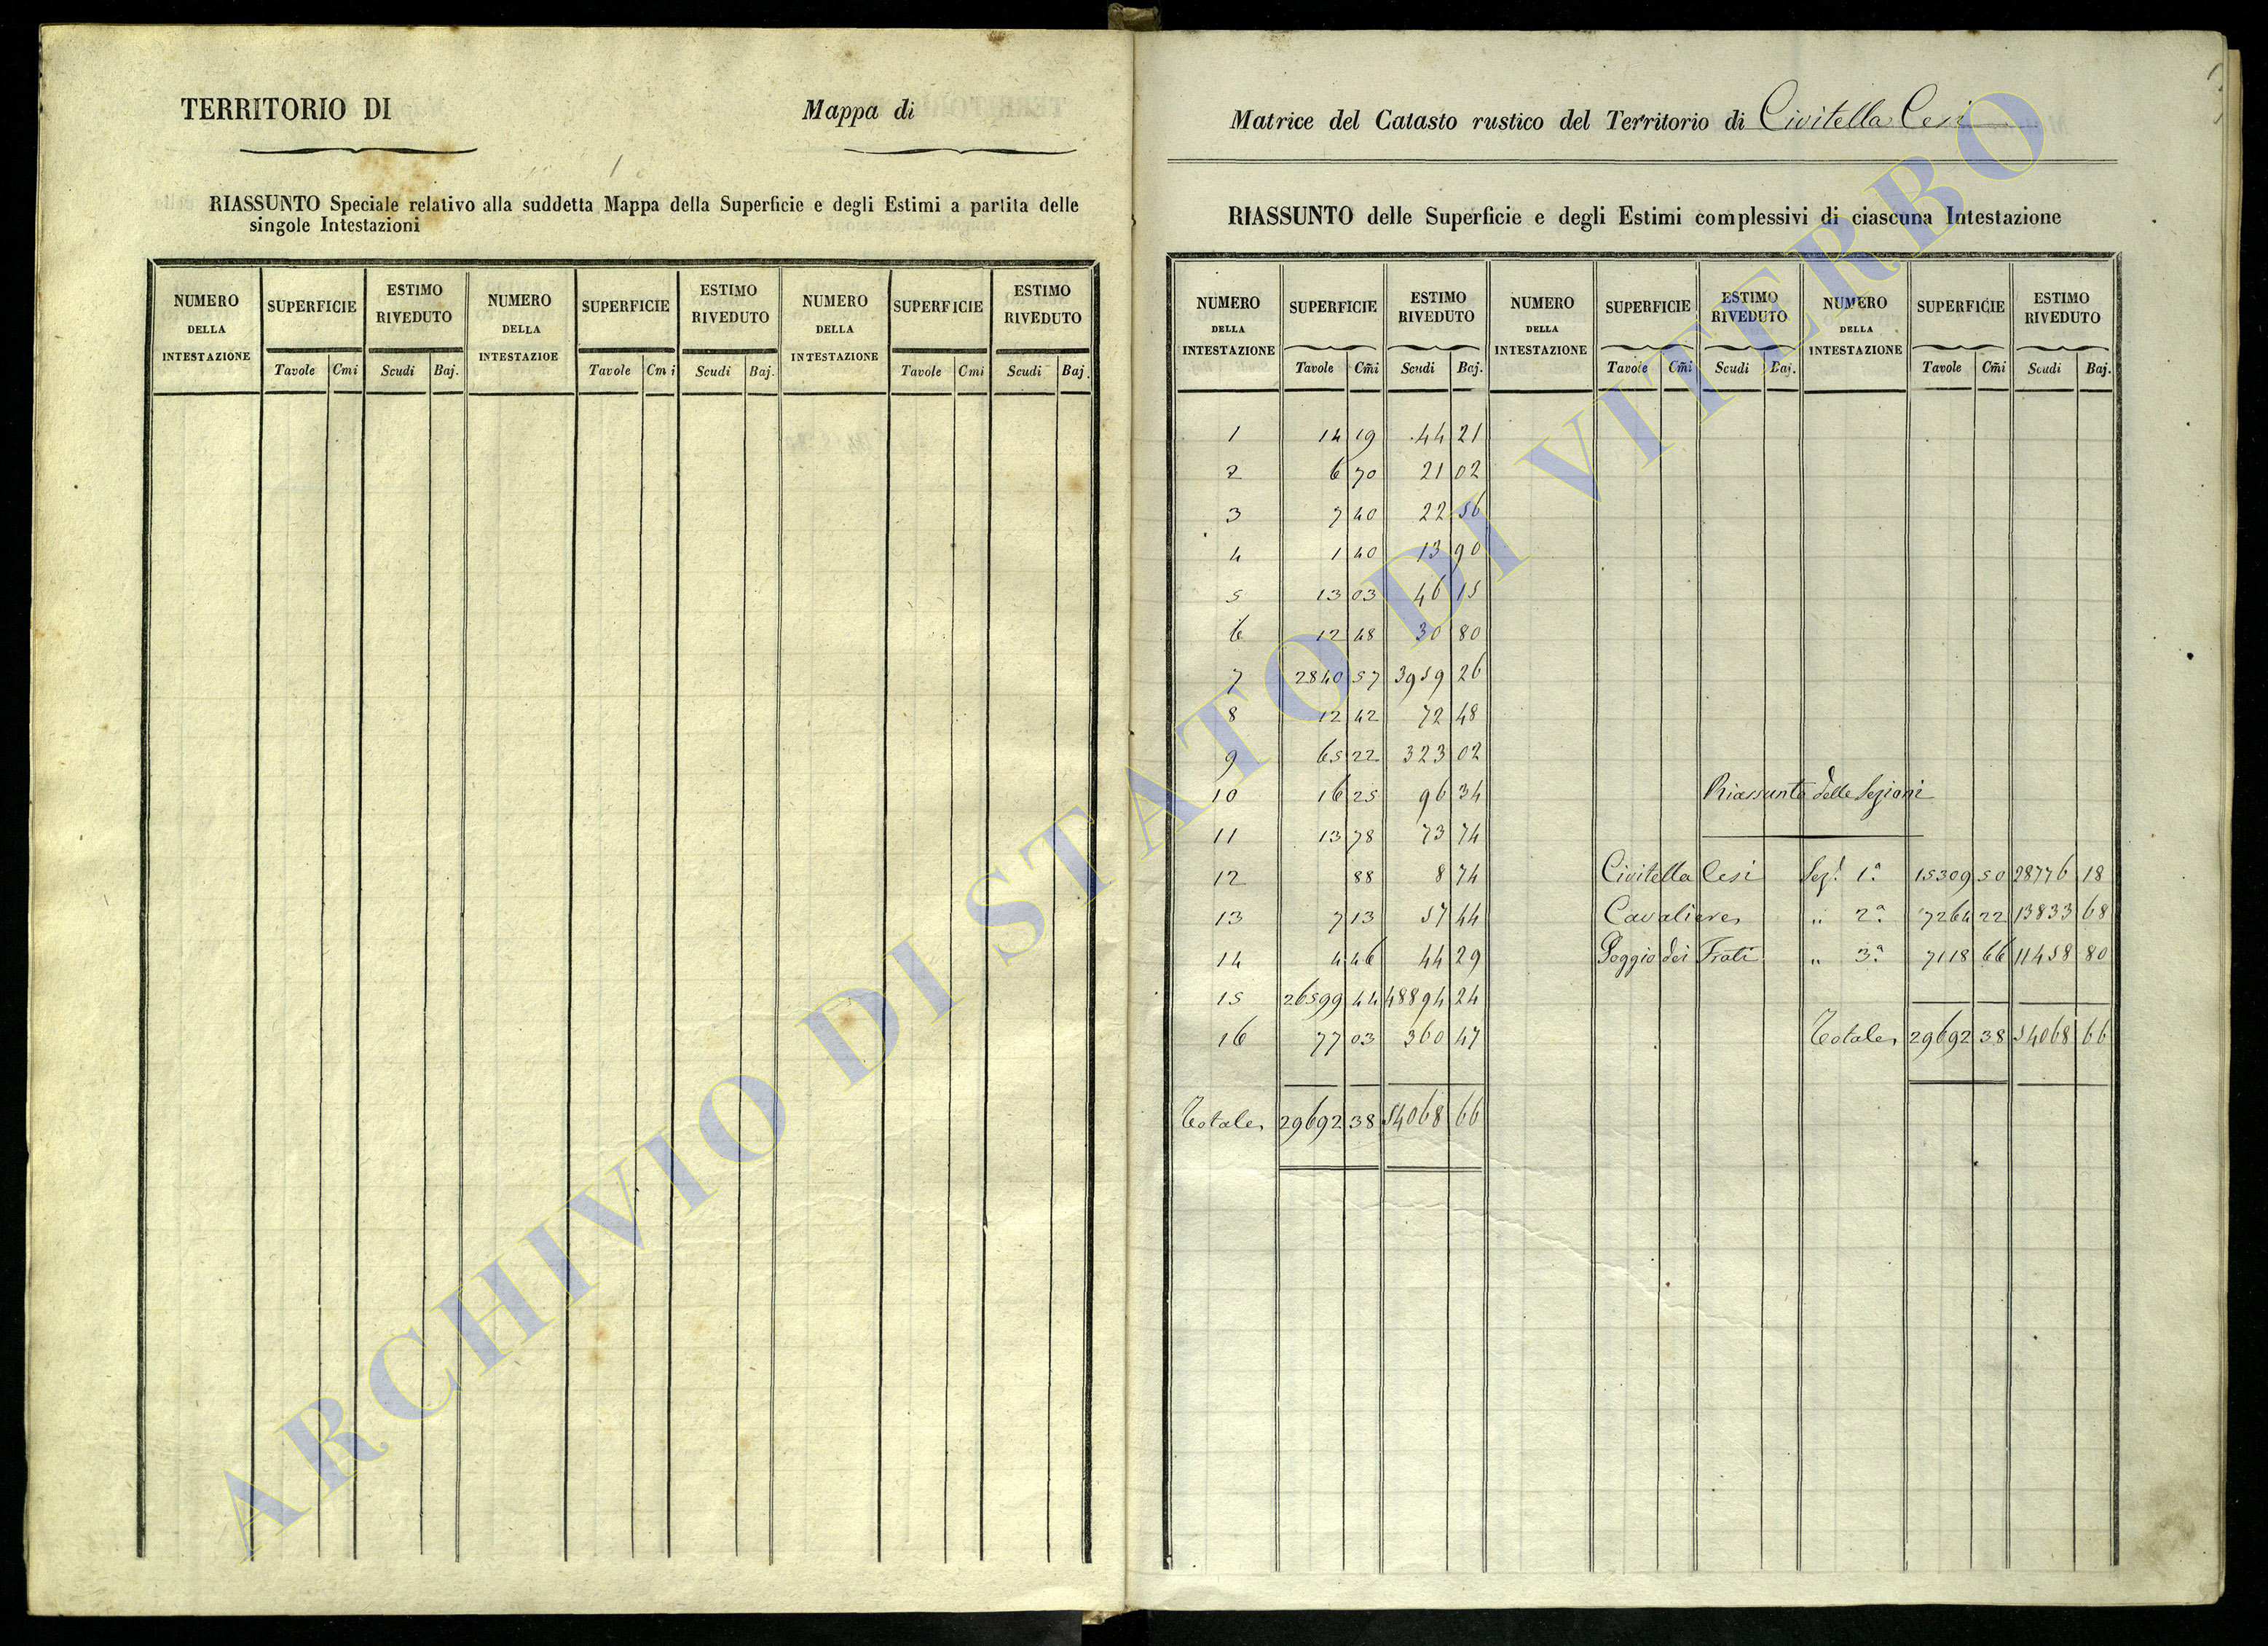 TERRITORIO DI
Mappa di
1
RIASSUNTO Speciale relativo alla suddetta Mappa della Superficie e degli Estimi a partita delle
singole Intestazioni
NUMERO DELLA INTESTAZIONE SUPERFICIE ESTIMO RIVEDUTO NUMERO DELLA INTESTAZIOE SUPERFICIE ESTIMO RIVEDUTO NUMERO DELLA INTESTAZIONE SUPERFICIE ESTIMO RIVEDUTO
Tavole Cmi Scudi Baj. Tavole Cmi Scudi Baj. Tavole Cmi Scudi Baj.
Matrice del Catasto rustico del Territorio di Civitella Cesi
RIASSUNTO delle Superficie e degli Estimi complessivi di ciascuna Intestazione
NUMERO DELLA INTESTAZIONE SUPERFICIE ESTIMO RIVEDUTO NUMERO DELLA INTESTAZIONE SUPERFICIE ESTIMO RIVEDUTO NUMERO DELLA INTESTAZIONE SUPERFICIE ESTIMO RIVEDUTO
Tavole Cm̃i Scudi Baj. Tavole Cm̃i Scudi Baj. Tavole Cm̃i Scudi Baj.
1 14 19 44 21
2 6 70 21 02
3 7 40 22 56
4 1 40 13 90
5 13 03 46 15
6 12 48 30 80
7 2840 57 3959 26
8 12 42 72 48
9 65 22 323 02
10 16 25 96 34
11 13 78 73 74
12 88 8 74
13 7 13 57 44
14 4 46 44 29
15 26599 44 48894 24
16 77 03 360 47
Totale 29692 38 54068 66
Riassunto delle Sezioni
Civitella Cesi Sez. 1ª 15309 50 28776 18
Cavaliere " 2ª 7264 22 13833 68
Poggio dei Frati " 3ª 7118 66 11458 80
Totale 29692 38 54068 66
ARCHIVIO DI STATO DI VITERBO